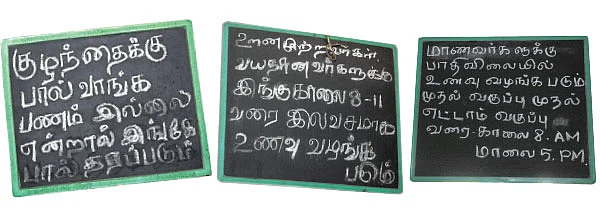 குழந்தைக்கு
பால் வாங்க
பணம் இல்லை
என்றால் இங்கே
பால் தரப்படும்
ஊனமுற்றவர்கள்
வயதானவர்களுக்கு
இங்கு காலை 8-11
வரை இலவசமாக
உணவு வழங்க
படும்
மாணவர்களுக்கு
பாதிவிலையில்
உணவு வழங்க படும்
முதல் வகுப்பு முதல்
எட்டாம் வகுப்பு
வரை-காலை 8. AM
மாலை 5. PM.